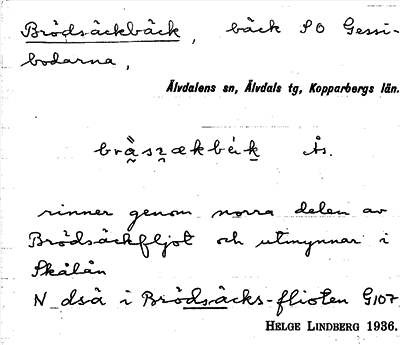 Brödsäckbäck, bäck SO Gessi-
bodarna,
Älvdalens sn, Älvdals tg, Kopparbergs län.
Ås.
rinner genom norra delen av
Brödsäckfljot och utmynnar i
Skålån
N dsä i Brödsäcks-flioten G107
HELGE LINDBERG 1936.